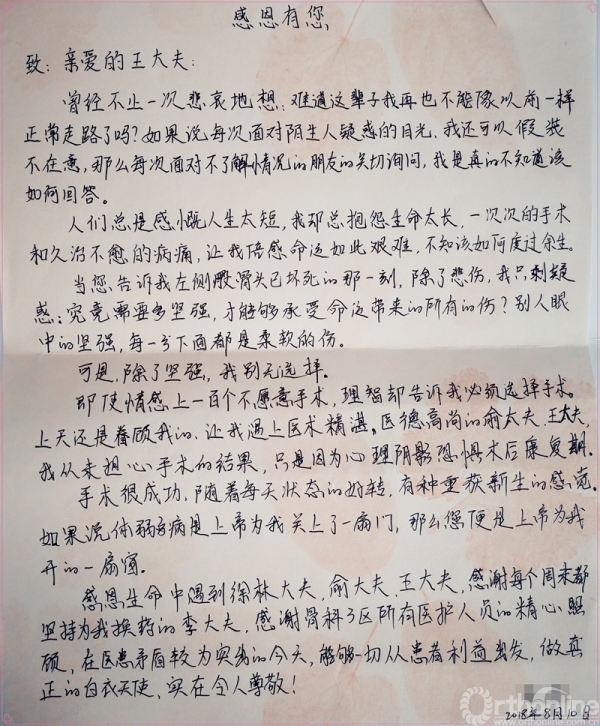 感恩有您
致：亲爱的王大夫：
曾经不止一次悲哀地想：难道这辈子我再也不能像以前一样
正常走路了吗？如果说每次面对陌生人疑惑的目光，我还可以假装
不在意，那么每次面对不了解情况的朋友的关切询问，我是真的不知道该
如何回答。
人们总是感慨人生太短，我却总抱怨生命太长，一次次的手术
和久治不愈的病痛，让我倍感命运如此艰难，不知该如何度过余生。
当您告诉我左侧股骨头已坏死的那一刻，除了悲伤，我只剩疑
惑：究竟需要多坚强，才能够承受命运带来的所有的伤？别人眼
中的坚强，每一步下面都是柔软的伤。
可是，除了坚强，我别无选择。
即使情感上一百个不愿意手术，理智却告诉我必须选择手术。
上天还是眷顾我的，让我遇上医术精湛、医德高尚的俞大夫、王大夫，
我从未担心手术的结果，只是因为心理阴影恐惧术后康复期。
手术很成功，随着每天状态的好转，有种重获新生的感觉。
如果说体弱多病是上帝为我关上了一扇门，那么您便是上帝为我
开的一扇窗。
感恩生命中遇到徐林大夫、俞大夫、王大夫，感谢每个周末都
坚持为我换药的李大夫，感谢骨科3区所有医护人员的精心照
顾，在医患矛盾较为突出的今天，能够一切从患者利益出发，做真
正的白衣天使，实在令人尊敬！
2018年8月10日
Orthonline